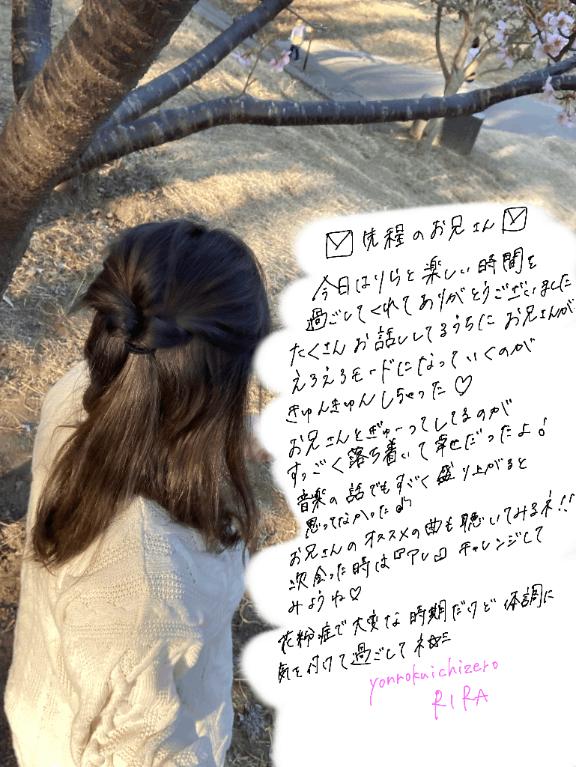 先程のお兄さん
今日はりらと楽しい時間を
過ごしてくれてありがとうございました
たくさんお話ししてるうちにお兄さんが
えろえろモードになっていくのが
きゅんきゅんしちゃった♡
お兄さんとぎゅーってしてるのが
すっごく落ち着いて幸せだったよ!
音楽の話でもすごく盛り上がると
思ってなかった
お兄さんのオススメの曲も聴いてみるネ!!
次会った時は『アレ』チャレンジして
みようね♡
花粉症で大変な時期だけど体調に
気を付けて過ごしてネ
yonrokuichizero
RIRA